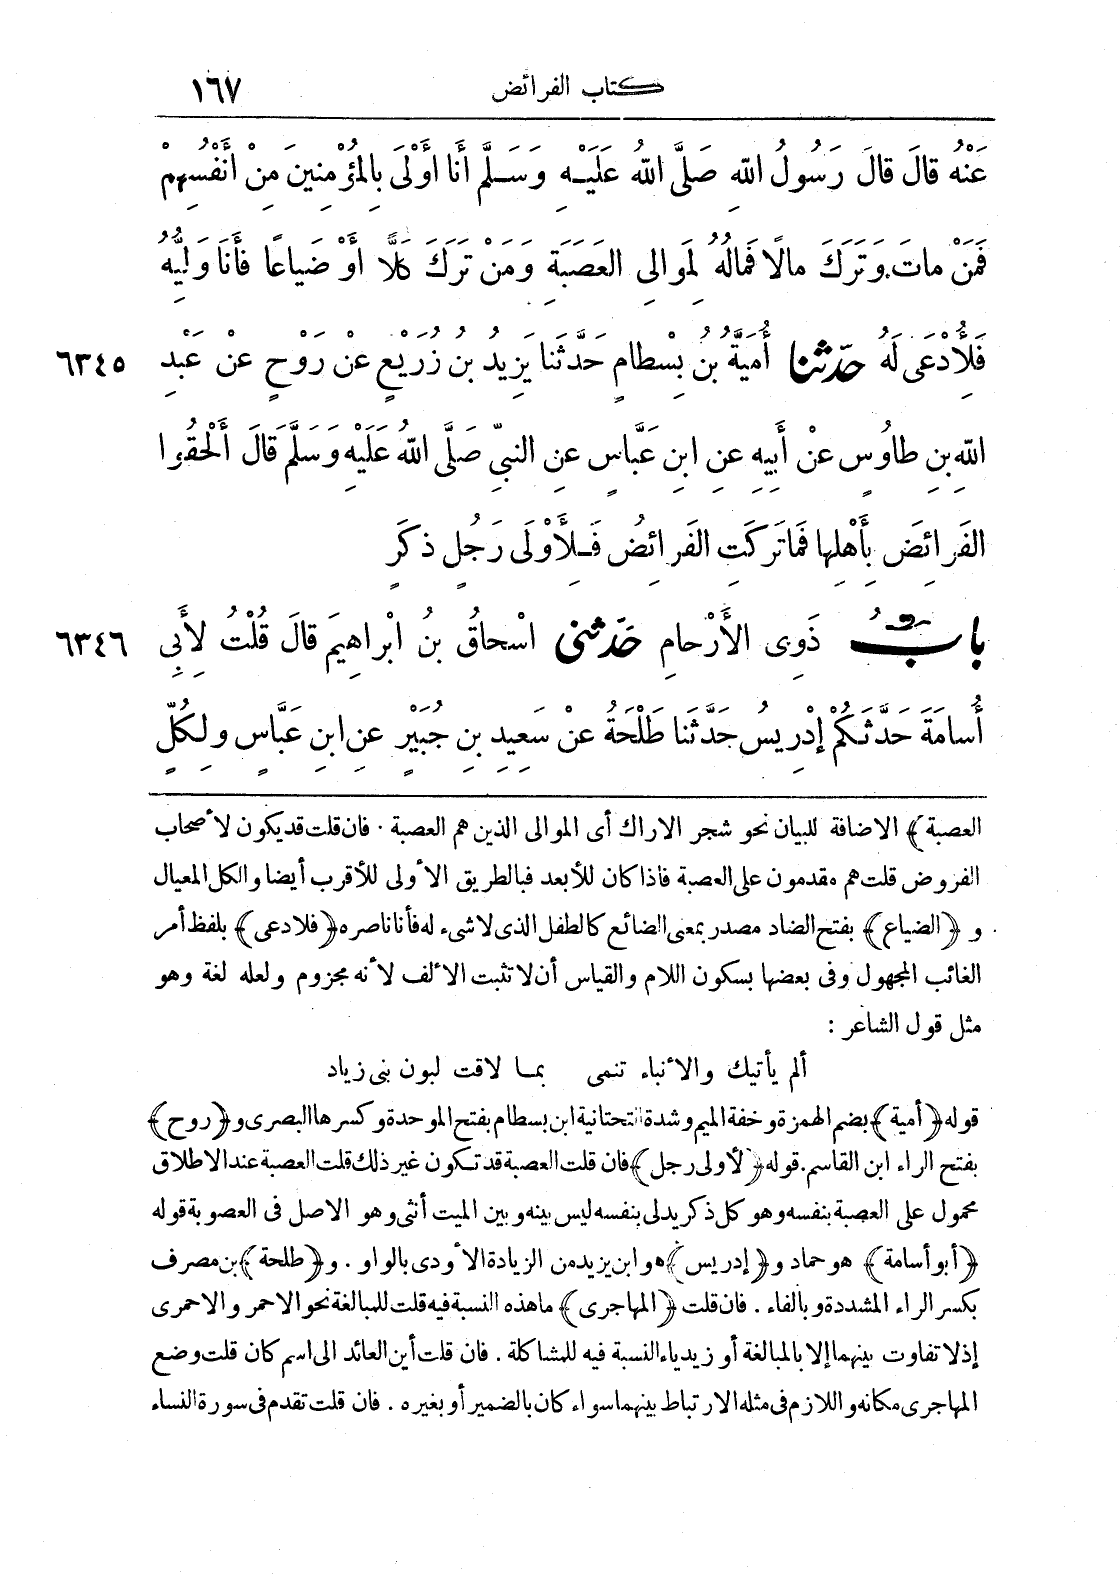 كتاب الفرائض ١٦٧
عَنْهُ قالَ قالَ رَسُولُ اللهِ صَلَّى اللهُ عَلَيْهِ وَسَلَّمَ أَنَا أَوْلَى بِالْمُؤْمِنِينَ مِنْ أَنْفُسِهِمْ
فَمَنْ ماتَ وَتَرَكَ مالًا فَمالُهُ لِمَوالِى العَصَبَةِ وَمَنْ تَرَكَ كَلًّا أَوْ ضَياعًا فَأَنَا وَلِيُّهُ
فَلِأُدْعَى لَهُ حَدَّثَنَا أُمَيَّةُ بنُ بِسْطامٍ حَدَّثَنا يَزِيدُ بنُ زُرَيْعٍ عنْ رَوْحٍ عنْ عَبْدِ ٦٣٤٥
اللهِ بنِ طاوُسٍ عنْ أَبِيهِ عنِ ابنِ عَبَّاسٍ عنِ النبيِّ صَلَّى اللهُ عَلَيْهِ وَسَلَّمَ قالَ أَلْحِقُوا
الفَرائِضَ بِأَهْلِها فَما تَرَكَتِ الفَرائِضُ فَلِأَوْلَى رَجُلٍ ذَكَرٍ
بابُ ذَوِى الأَرْحامِ حَدَّثَنِى اسْحاقُ بنُ ابْراهِيمَ قالَ قُلْتُ لِأَبِى ٦٣٤٦
أُسامَةَ حَدَّثَكُمْ إِدْرِيسُ حَدَّثَنَا طَلْحَةُ عنْ سَعِيدِ بنِ جُبَيْرٍ عنِ ابنِ عَبَّاسٍ ولِكُلٍّ
العصبة﴾ الاضافة للبيان نحو شجر الاراك أى الموالى الذين هم العصبة . فان قلت قد يكون لأصحاب
الفروض قلت هم مقدمون على العصبة فاذا كان للأبعد فبالطريق الأولى للأقرب أيضا والكل المعيال
و ﴿الضياع﴾ بفتح الضاد مصدر بمعنى الضائع كالطفل الذى لا شىء له فأنا ناصره ﴿فلادعى﴾ بلفظ أمر
الغائب المجهول وفى بعضها بسكون اللام والقياس أن لا تثبت الألف لأنه مجزوم ولعله لغة وهو
مثل قول الشاعر :
ألم يأتيك والأنباء تنمى بما لاقت لبون بنى زياد
قوله ﴿أمية﴾ بضم الهمزة وخفة الميم وشدة التحتانية ابن بسطام بفتح الموحدة وكسرها البصرى و ﴿روح﴾
بفتح الراء ابن القاسم . قوله ﴿لأولى رجل﴾ فان قلت العصبة قد تكون غير ذلك قلت العصبة عند الاطلاق
محمول على العصبة بنفسه وهو كل ذكر يدلى بنفسه ليس بينه وبين الميت أنثى وهو الاصل فى العصوبة قوله
﴿أبو أسامة﴾ هو حماد و ﴿إدريس﴾ هو ابن يزيد من الزيادة الأودى بالواو . و ﴿طلحة﴾ بن مصرف
بكسر الراء المشددة وبالفاء . فان قلت ﴿المهاجرى﴾ ما هذه النسبة فيه قلت للمبالغة نحو الاحمر والاحمرى
إذ لا تفاوت بينهما إلا بالمبالغة أو زيد ياء النسبة فيه للمشاكلة . فان قلت أين العائد الى اسم كان قلت وضع
المهاجرى مكانه واللازم فى مثله الارتباط بينهما سواء كان بالضمير أو بغيره . فان قلت تقدم فى سورة النساء